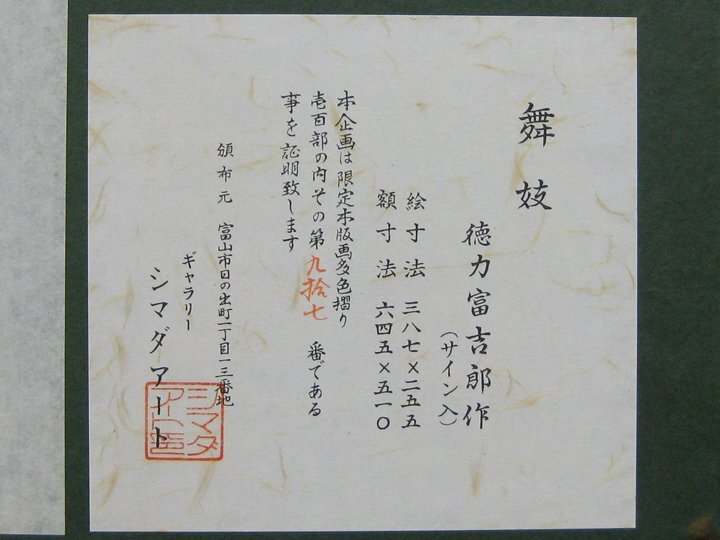 舞妓
徳力富吉郎作
(サイン入)
絵寸法 三八七×二五五
額寸法 六四五×五一〇
本企画は限定本版画多色摺り
壱百部の内その第九拾七 番である
事を証明致します
頒布元 富山市日の出町一丁目一三番地
ギャラリー
シマダアート
シマダ
アート